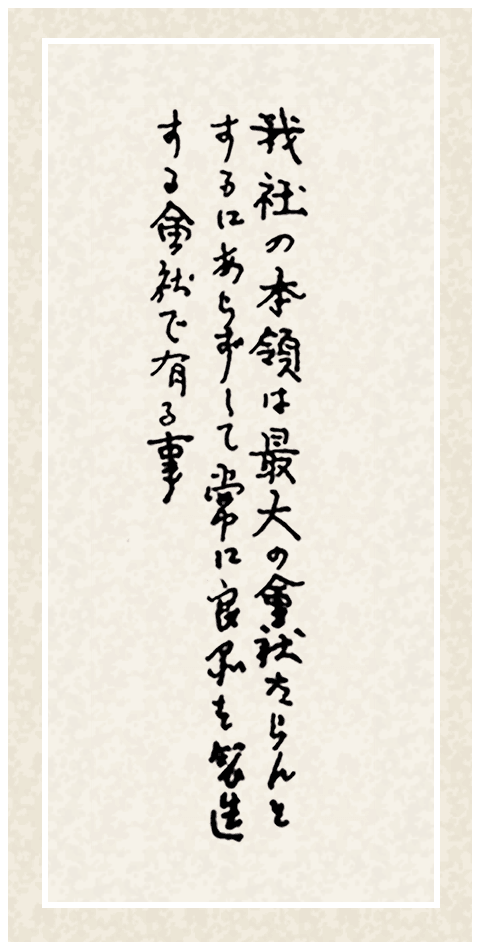 我社の本領は最大の會社たらんと
するにあらずして常に良品を製造
する會社で有る事